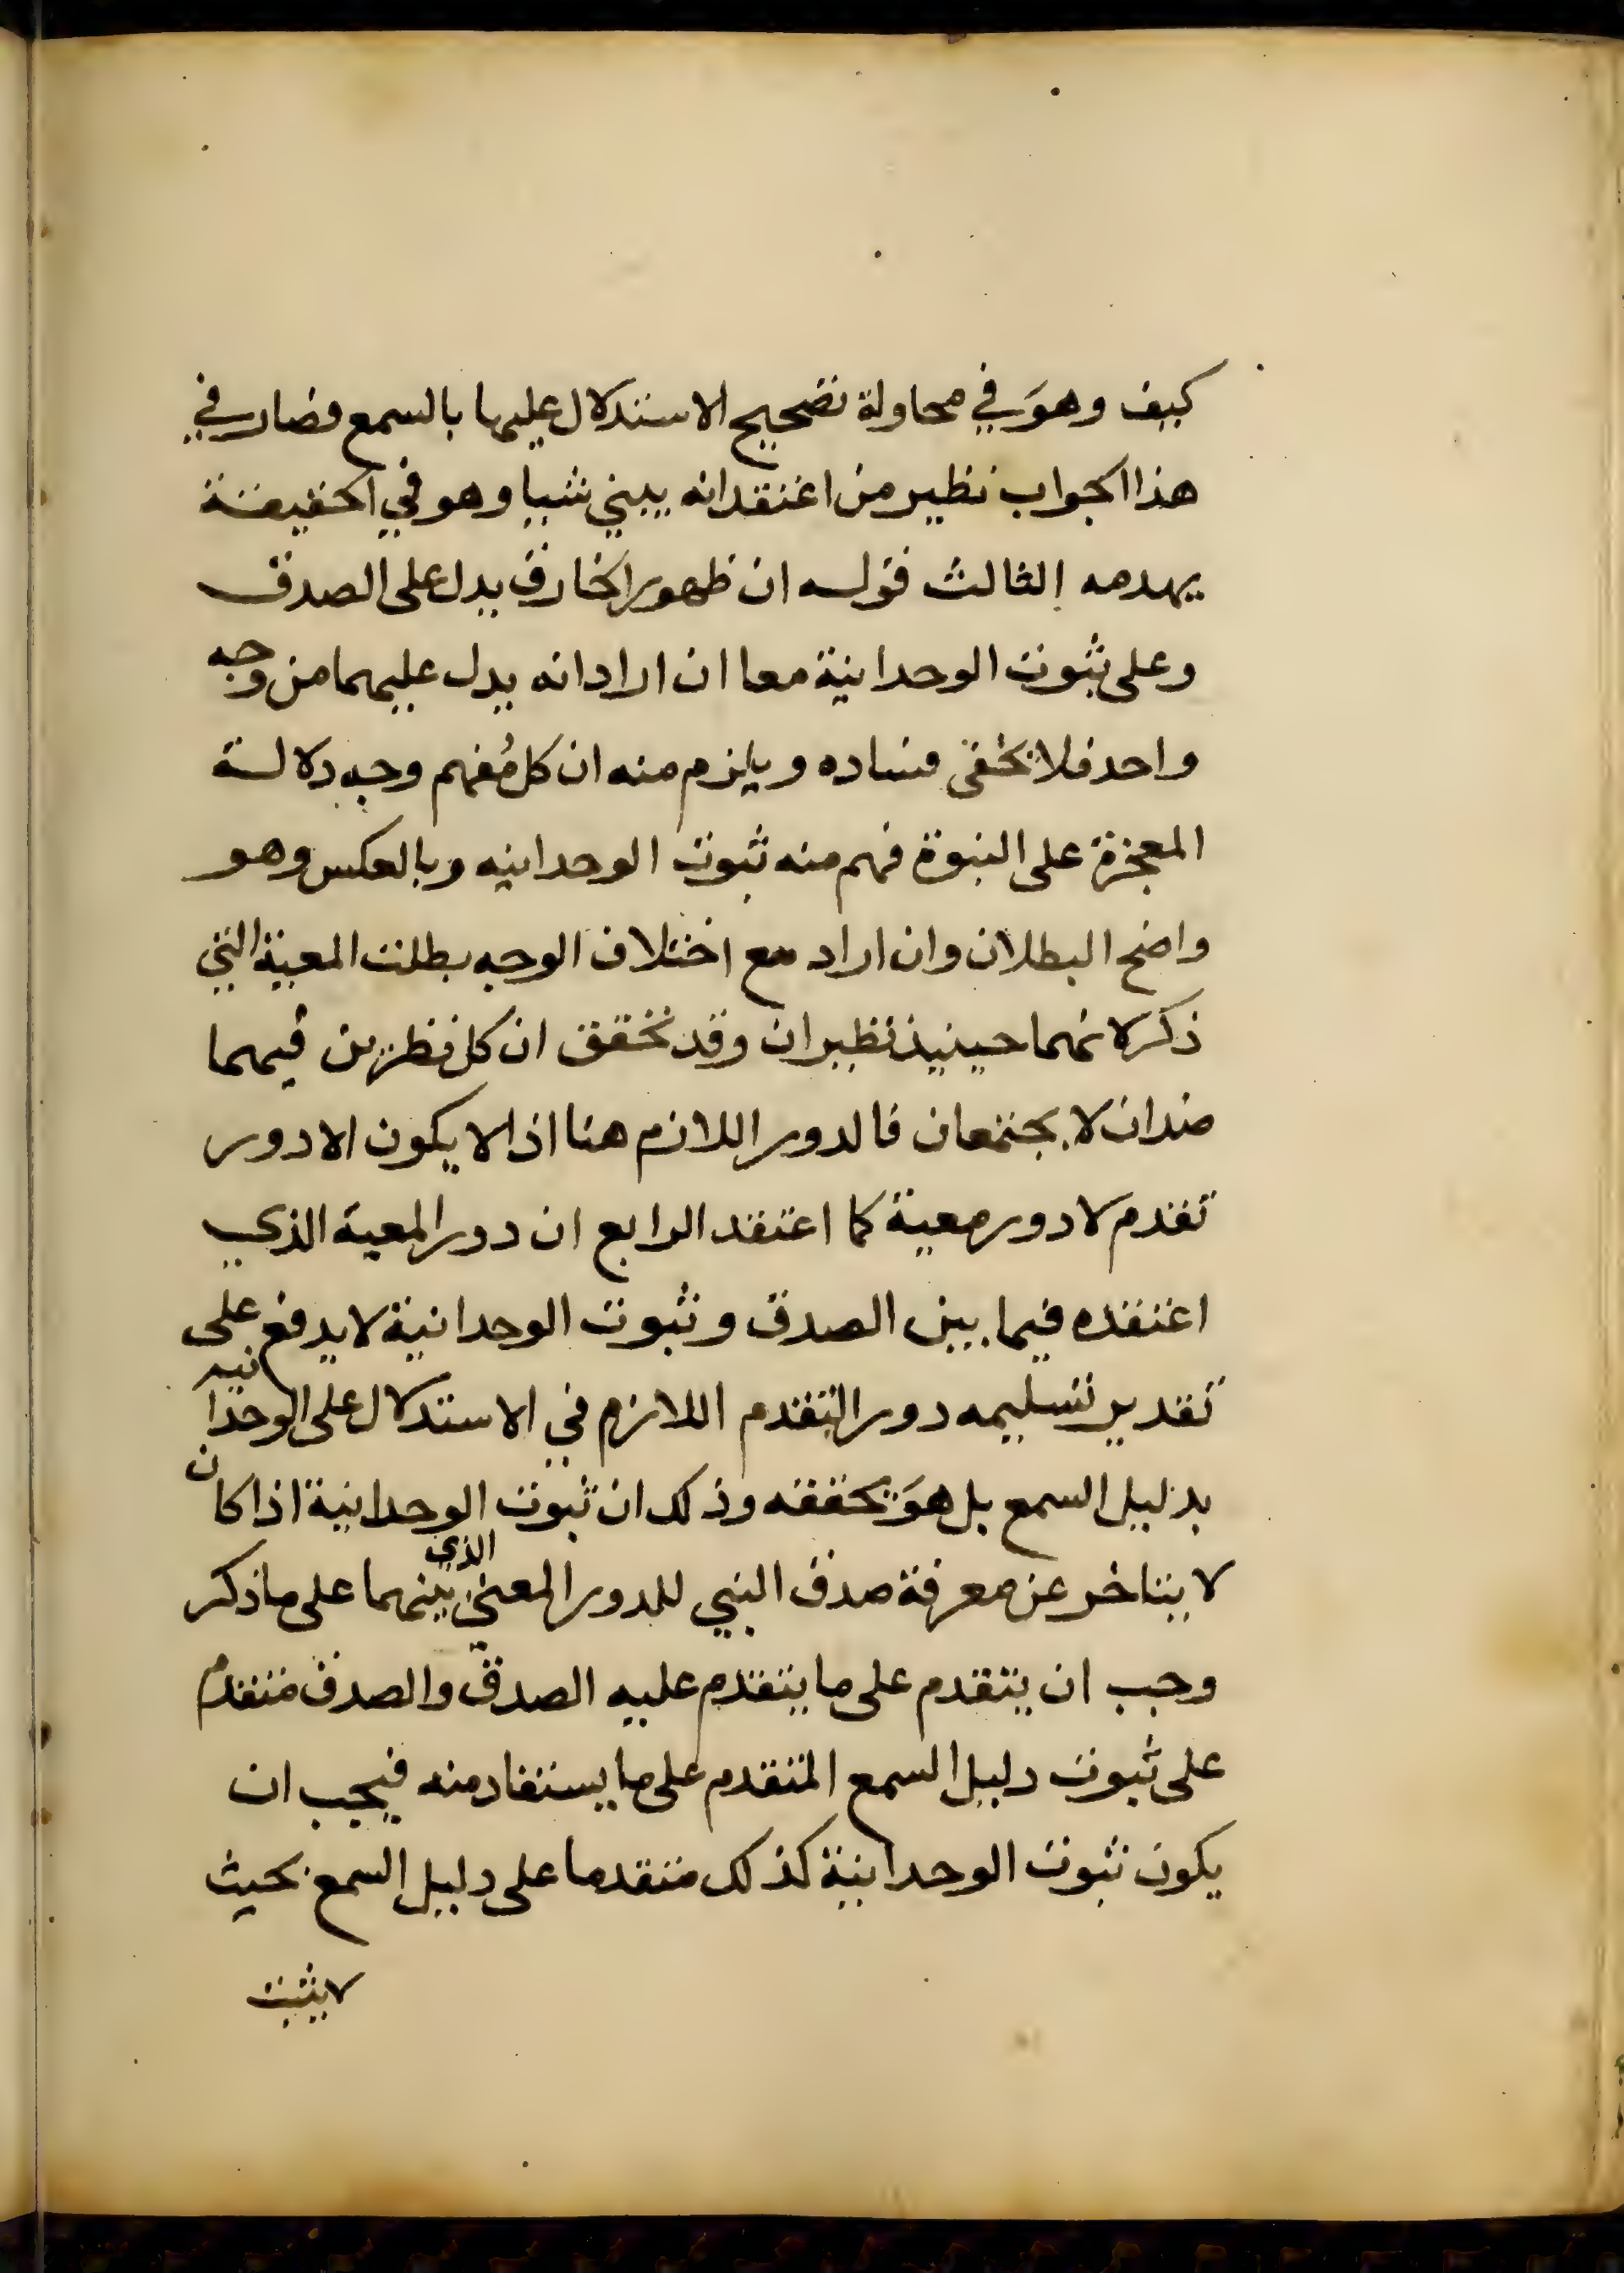 كيف وهوَ في محاولة تصحيح الاستدلال عليها بالسمع فصار في
هذا الجواب نظير من اعتقد انه يبني شيا وهو في الحقيقة
يهدمه الثالث قوله ان ظهور الخارق يدل على الصدق
وعلى ثبوت الوحدانية معا ان اراد انه يدل عليهما من وجه
واحد فلا يخفى فساده ويلزم منه ان كل مُفهم وجه دلالة
المعجزة على النبوة فهم منه ثبوت الوحدانيه وبالعكس وهو
واضح البطلان وان اراد مع اختلاف الوجه بطلت المعية التي
ذكر لانهما حينيذ نظيران وقد تحقق ان كل نظرين فيهما
ضدان لا يجتمعان فالدور اللازم هنا اذا لا يكون الا دور
تقدم لا دور معية كما اعتقد الرابع ان دور المعية الذي
اعتقده فيما بين الصدق وثبوت الوحدانية لا يدفع على
تقدير تسليمه دور التقدم اللازم في الاستدلال على الوحدانيه
بدليل السمع بل هوَ يحققه وذلك ان ثبوت الوحدانية اذا كان
لا يتاخر عن معرفة صدق النبي للدور المعي الذي بينهما على ما ذكر
وجب ان يتقدم على ما يتقدم عليه الصدق والصدق متقدم
على ثبوت دليل السمع المتقدم على ما يستفاد منه فيجب ان
يكون ثبوت الوحدانية كذلك متقدما على دليل السمع بحيث
لا يثبت